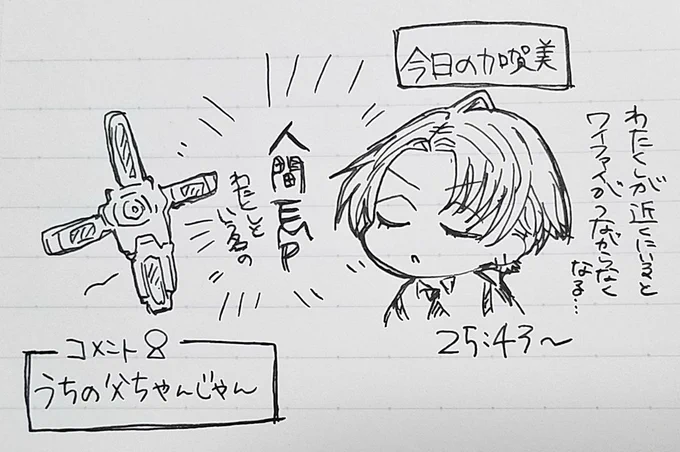 今日の加賀美
わたくしが近くにいると
ワイファイがつながらなく
なる…
人間EMP
わたくしと
いう名の
25:43〜
コメント
うちの父ちゃんじゃん